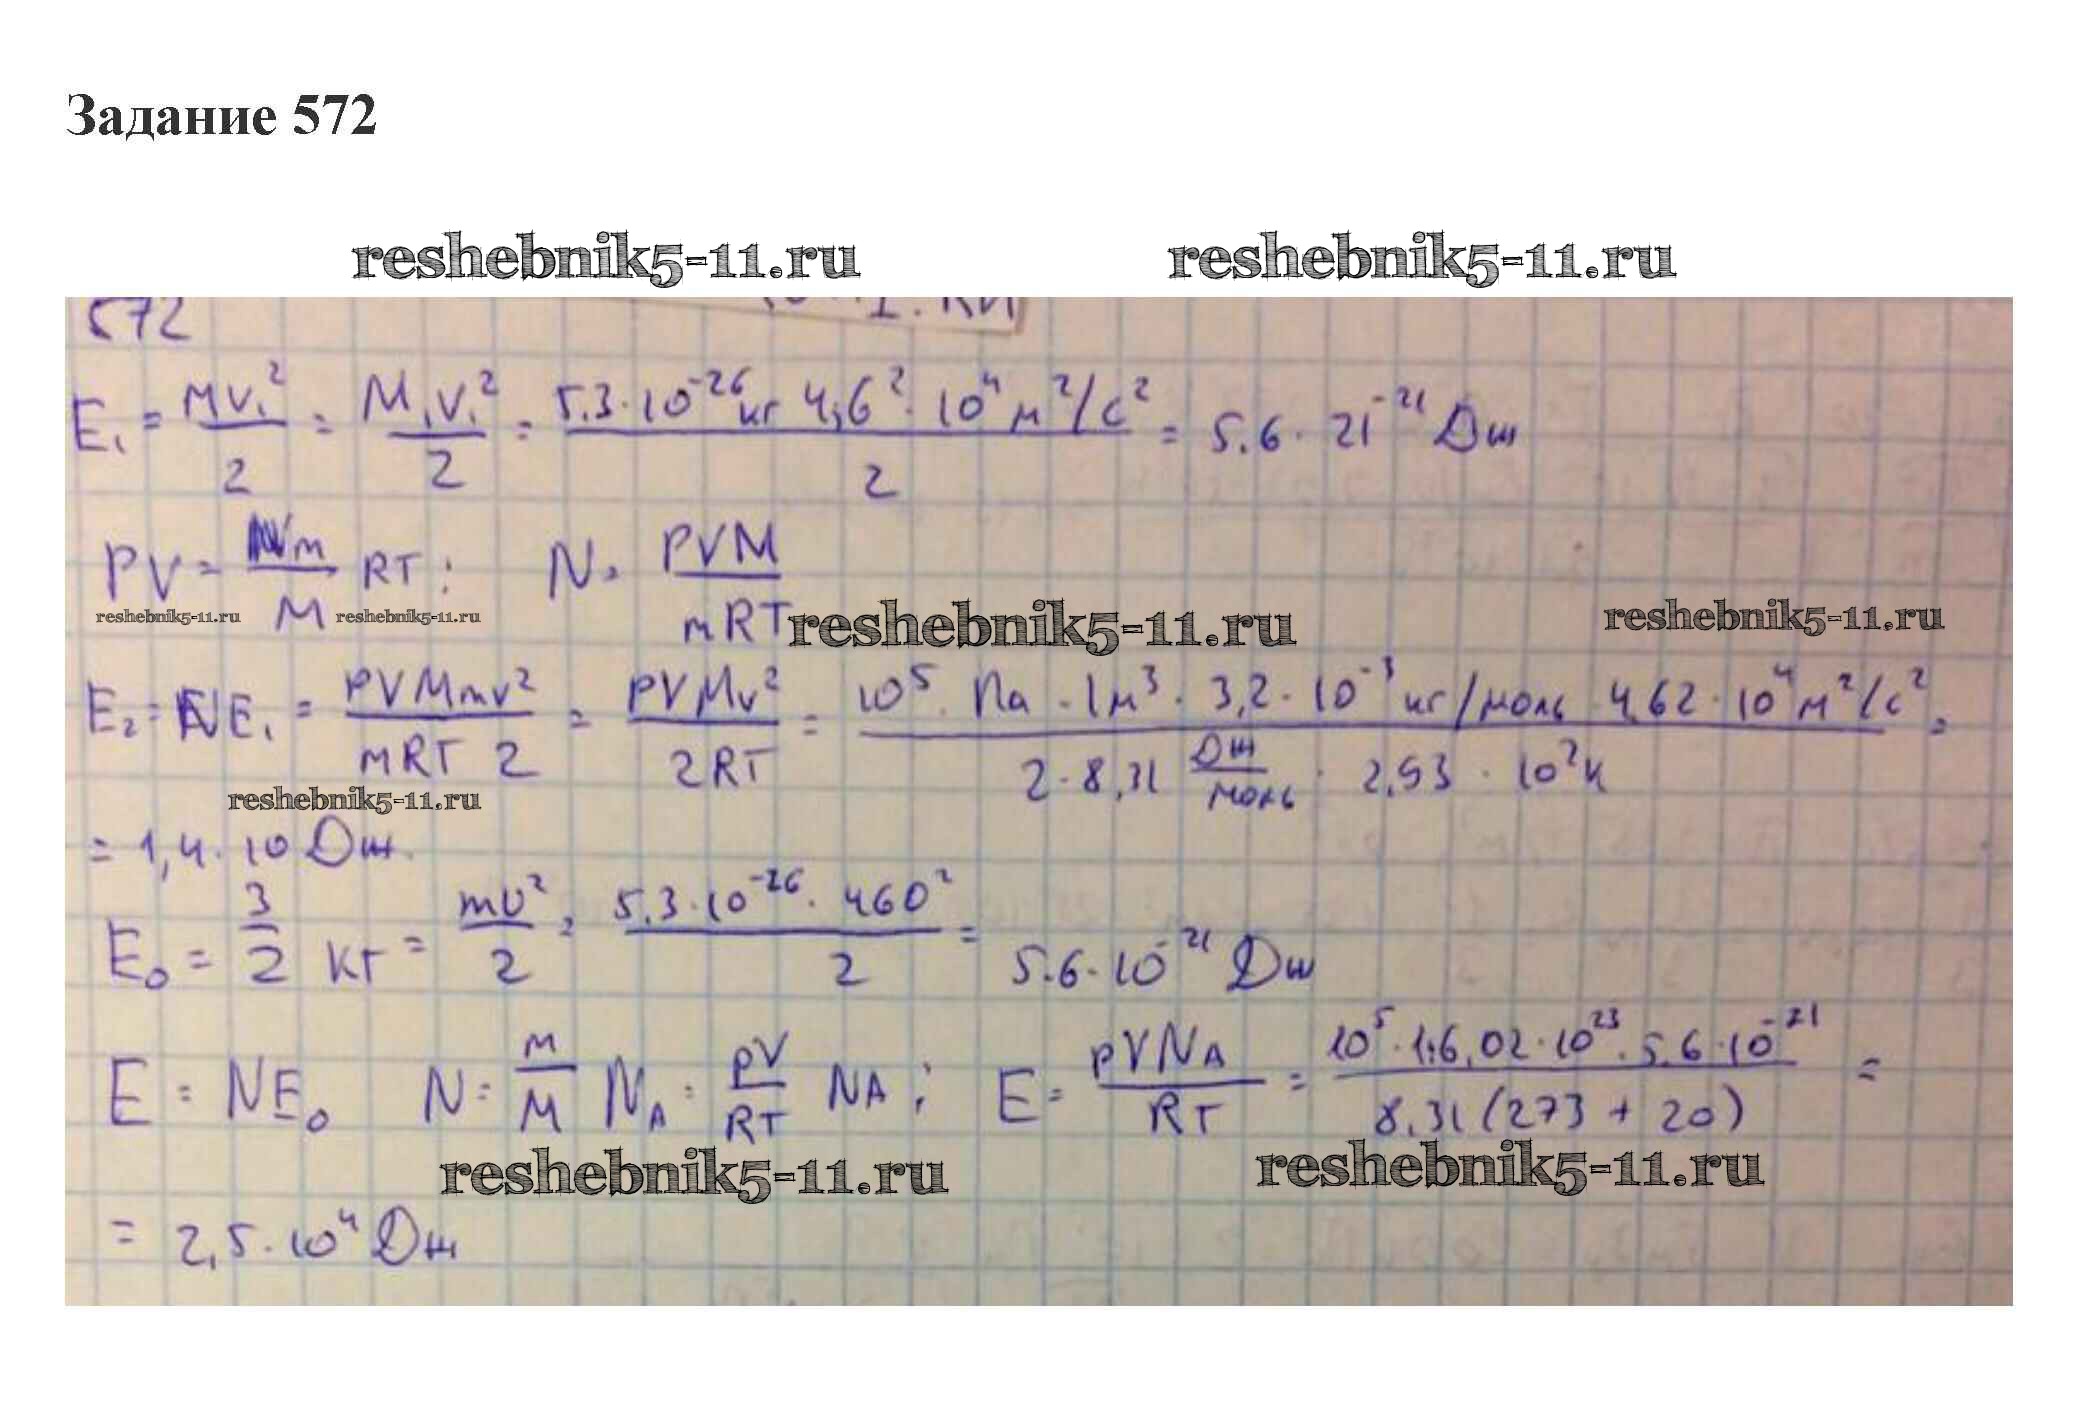 Задание 572
reshebnik5-11.ru reshebnik5-11.ru
572
E₁ = mv₁²/2 = M₁v₁²/2 = 5.3·10⁻²⁶кг 4,6²·10⁴ м²/с² / 2 = 5.6·21⁻²¹ Дж
PV = Nm/M RT; N = PVM/mRT
reshebnik5-11.ru reshebnik5-11.ru reshebnik5-11.ru reshebnik5-11.ru
E₂ = NE₁ = PVMmv²/mRT 2 = PVMv²/2RT = 10⁵·Па·1м³·3,2·10⁻³кг/моль·4,62·10⁴м²/с² / 2·8,31 Дж/моль·2,93·10²К =
reshebnik5-11.ru
= 1,4·10 Дж.
E₀ = 3/2 кт = mv²/2 = 5.3·10⁻²⁶·460²/2 = 5.6·10⁻²¹ Дж
E = NE₀ N = m/M N_A = pV/RT NA; E = pVN_A/RT = 10⁵·1·6,02·10²³·5.6·10⁻²¹ / 8,31(273+20) =
reshebnik5-11.ru reshebnik5-11.ru
= 2,5·10⁴ Дж